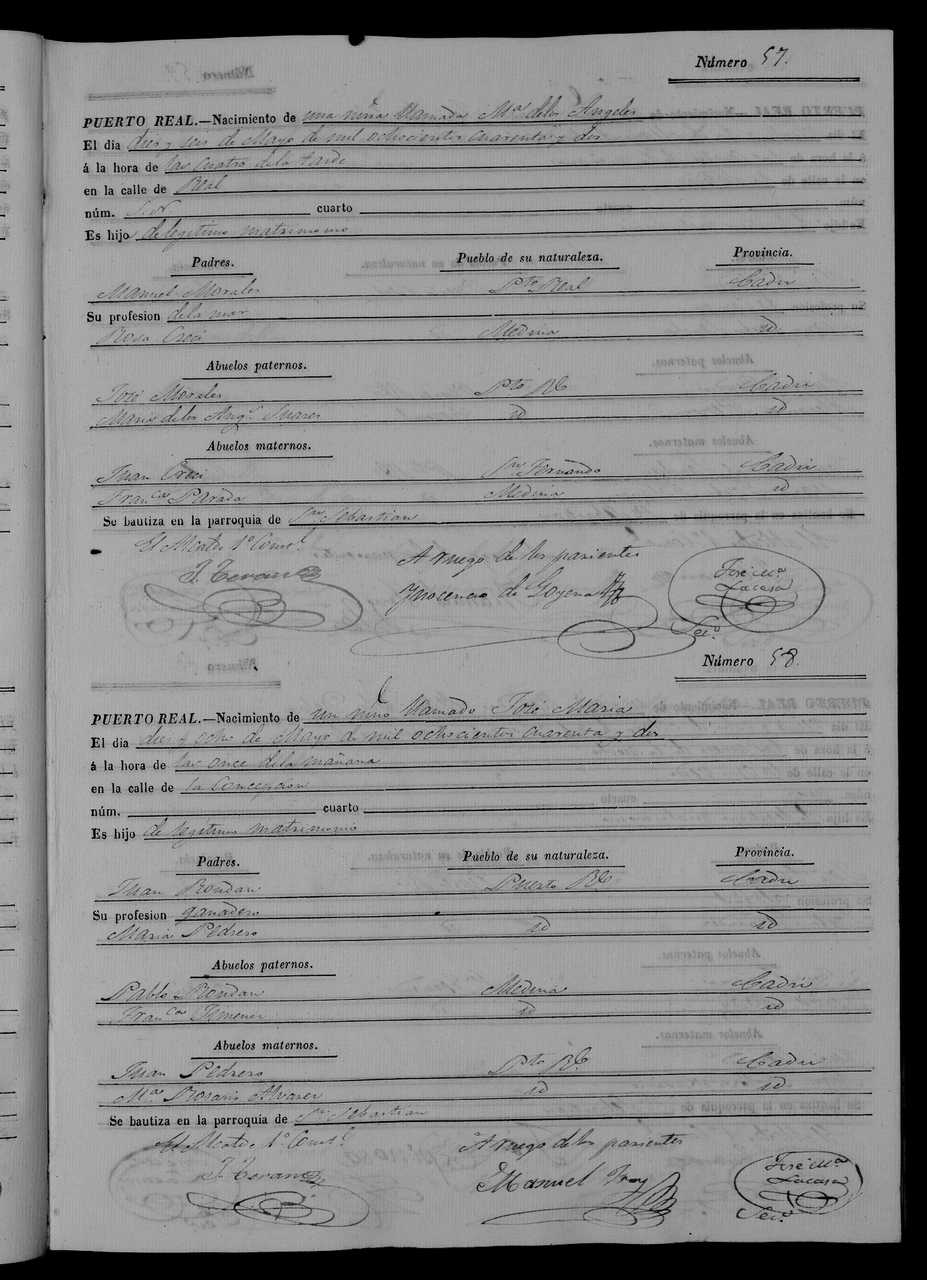 Número 57.
PUERTO REAL.—Nacimiento de una niña llamada Mª. delos Angeles
El dia diez y seis de Mayo de mil ochocientos cuarenta y dos
á la hora de las cuatro dela tarde
en la calle de Real
núm. S. N. cuarto
Es hijo de legitimo matrimonio
Padres. Pueblo de su naturaleza. Provincia.
Manuel Morales Pto. Real Cadiz
Su profesion dela mar
Rosa Medina id
Abuelos paternos.
José Morales Pto. Rl. Cadiz
Maria delos Angs. Suares id id
Abuelos maternos.
Juan Sn. Fernando Cadiz
Francca. Parada Medina id
Se bautiza en la parroquia de Sn. Sebastian
El Alcalde 1º. Constl. A ruego de los parientes
J. Teran Ynocencio de Goyena José Mª. Lacasa
Seco.
Número 58.
PUERTO REAL.—Nacimiento de un niño llamado José Maria
El dia diez y ocho de Mayo de mil ochocientos cuarenta y dos
á la hora de las once dela mañana
en la calle de la Concepcion
núm. cuarto
Es hijo de legitimo matrimonio
Padres. Pueblo de su naturaleza. Provincia.
Juan Rondan Puerto Rl. Cadiz
Su profesion ganadero
Maria Pedrero id id
Abuelos paternos.
Pablo Rondan Medina Cadiz
Francca. Ximenez id id
Abuelos maternos.
Juan Pedrero Pto. Rl. Cadiz
Mª. Rosario Alvarez id id
Se bautiza en la parroquia de Sn. Sebastian
El Alcalde 1º. Constl. A ruego delos parientes
J. Teran Manuel José Mª. Lacasa
Seco.